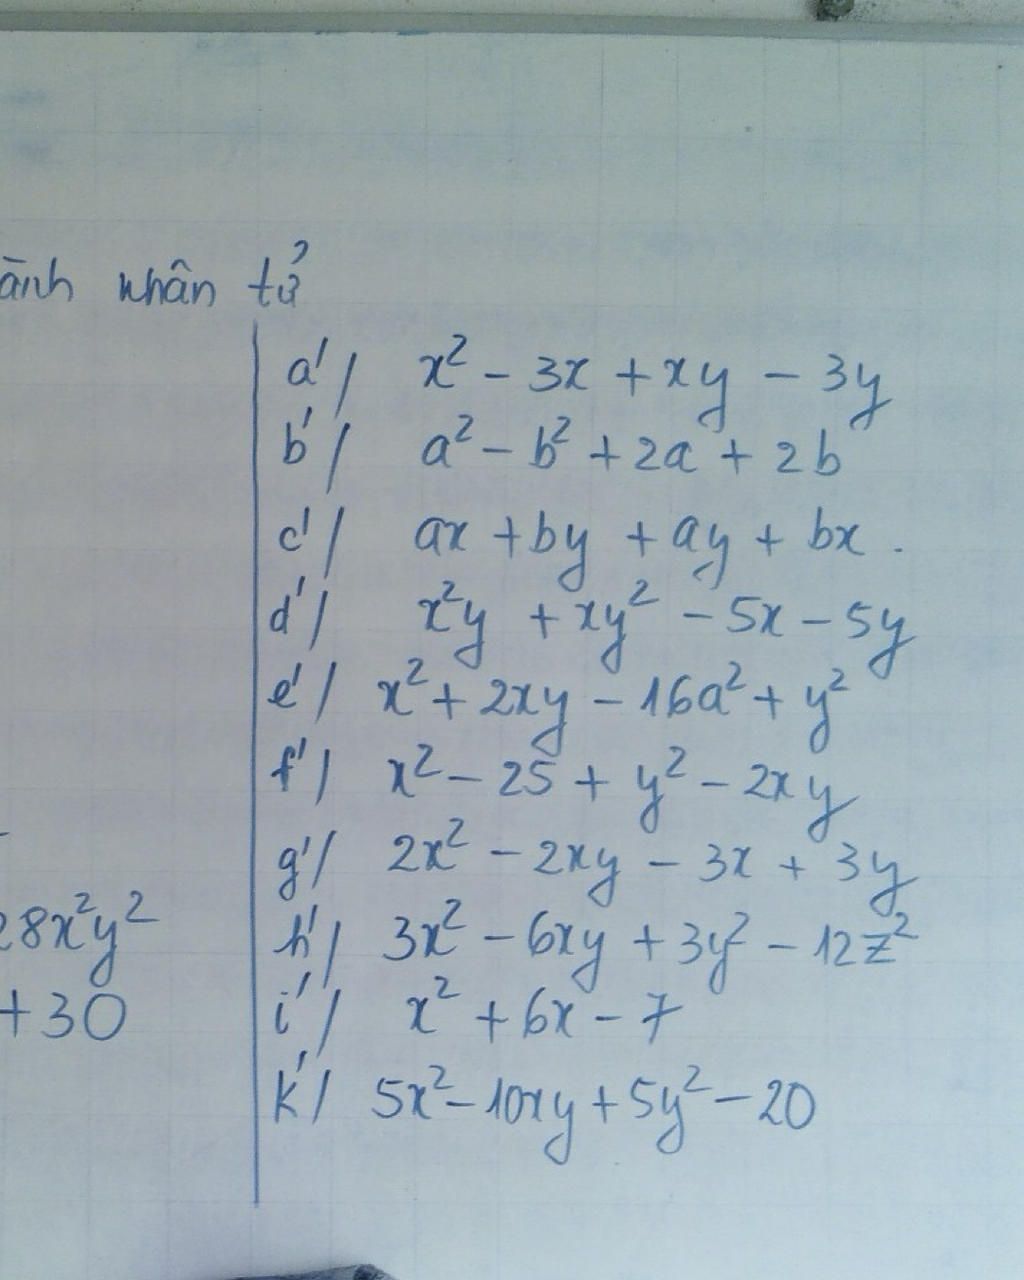 ành nhân tử
a'/ x² - 3x + xy - 3y
b'/ a² - b² + 2a + 2b
c'/ ax + by + ay + bx .
d'/ x²y + xy² - 5x - 5y
e'/ x² + 2xy - 16a² + y²
f'/ x² - 25 + y² - 2xy
g'/ 2x² - 2xy - 3x + 3y
28x²y²
h'/ 3x² - 6xy + 3y² - 12z²
+30
i'/ x² + 6x - 7
k'/ 5x² - 10xy + 5y² - 20